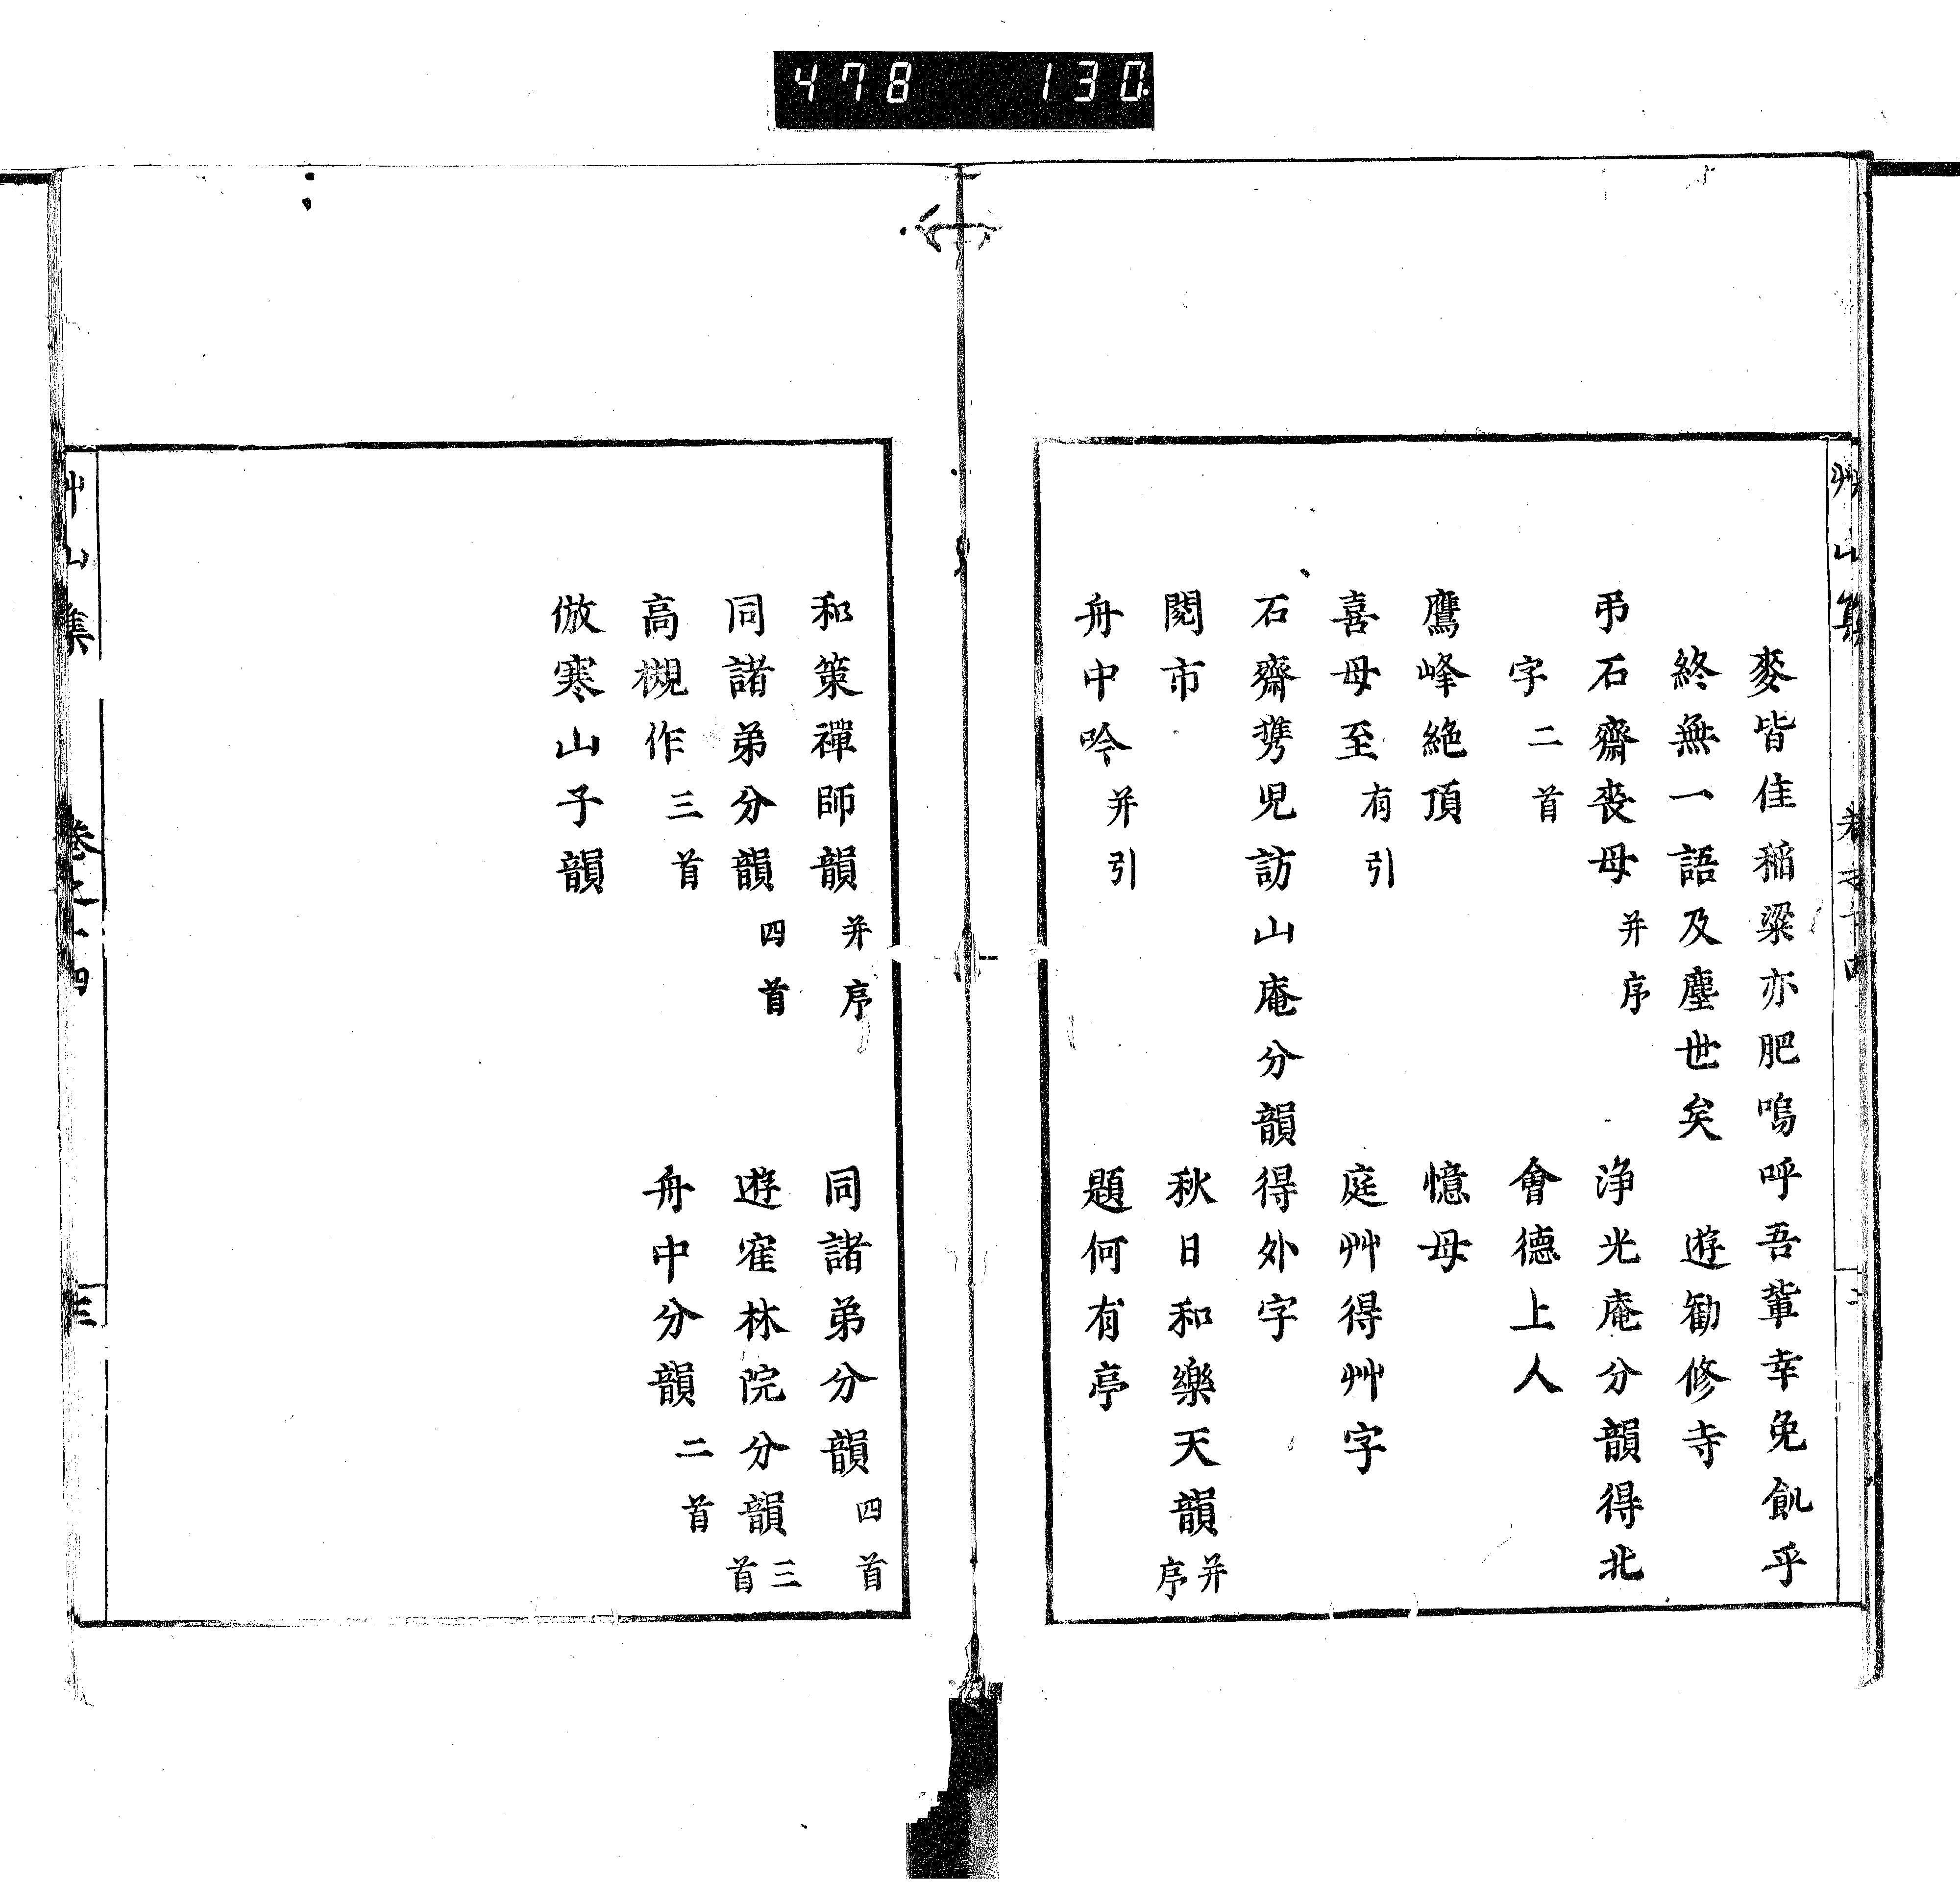 478 130
艸山集 卷之十四 二
麥皆佳稲粱亦肥嗚呼吾輩幸免飢乎
終無一語及塵世矣 遊勧修寺
弔石齋喪母并序 浄光庵分韻得北
字二首 會德上人
鷹峰絶頂 憶母
喜母至有引 庭艸得艸字
石齋携児訪山庵分韻得外字
閲市 秋日和樂天韻并序
舟中吟并引 題何有亭
和策禪師韻并序 同諸弟分韻四首
同諸弟分韻四首 遊寉林院分韻三首
高櫬作三首 舟中分韻二首
倣寒山子韻
艸山集 卷之十四 三